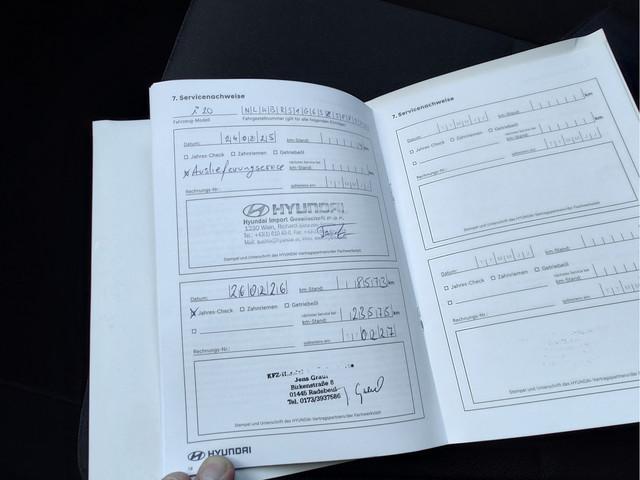 7. Servicenachweise
i20
Fahrzeug-Modell: Fahrgestellnummer (gilt für alle folgenden Einträge)
Datum: 240225 km-Stand: km
Jahres-Check Zahnriemen Getriebeöl
x Auslieferungsservice nächster Service bei km-Stand: km
Rechnungs-Nr.: spätestens am:
HYUNDAI
Hyundai Import Gesellschaft m.b.H.
1230 Wien, Richard
Stempel und Unterschrift des HYUNDAI-Vertragspartners/der Fachwerkstatt
Datum: 260226 km-Stand: 18573 km
x Jahres-Check Zahnriemen Getriebeöl
nächster Service bei km-Stand: 23575 km
Rechnungs-Nr.: spätestens am: 0227
KFZ-
Jens
Birkenstraße 6
01445 Radebeul
Tel. 0173/3937586
Stempel und Unterschrift des HYUNDAI-Vertragspartners/der Fachwerkstatt
HYUNDAI
7. Servicenachweise
Datum: km-Stand: km
Jahres-Check Zahnriemen Getriebeöl
nächster Service bei km-Stand: km
Rechnungs-Nr.: spätestens am:
Stempel und Unterschrift des HYUNDAI-Vertragspartners/der Fachwerkstatt
Datum: km-Stand: km
Jahres-Check Zahnriemen Getriebeöl
nächster Service bei km-Stand: km
Rechnungs-Nr.: spätestens am:
Stempel und Unterschrift des HYUNDAI-Vertragspartners/der Fachwerkstatt